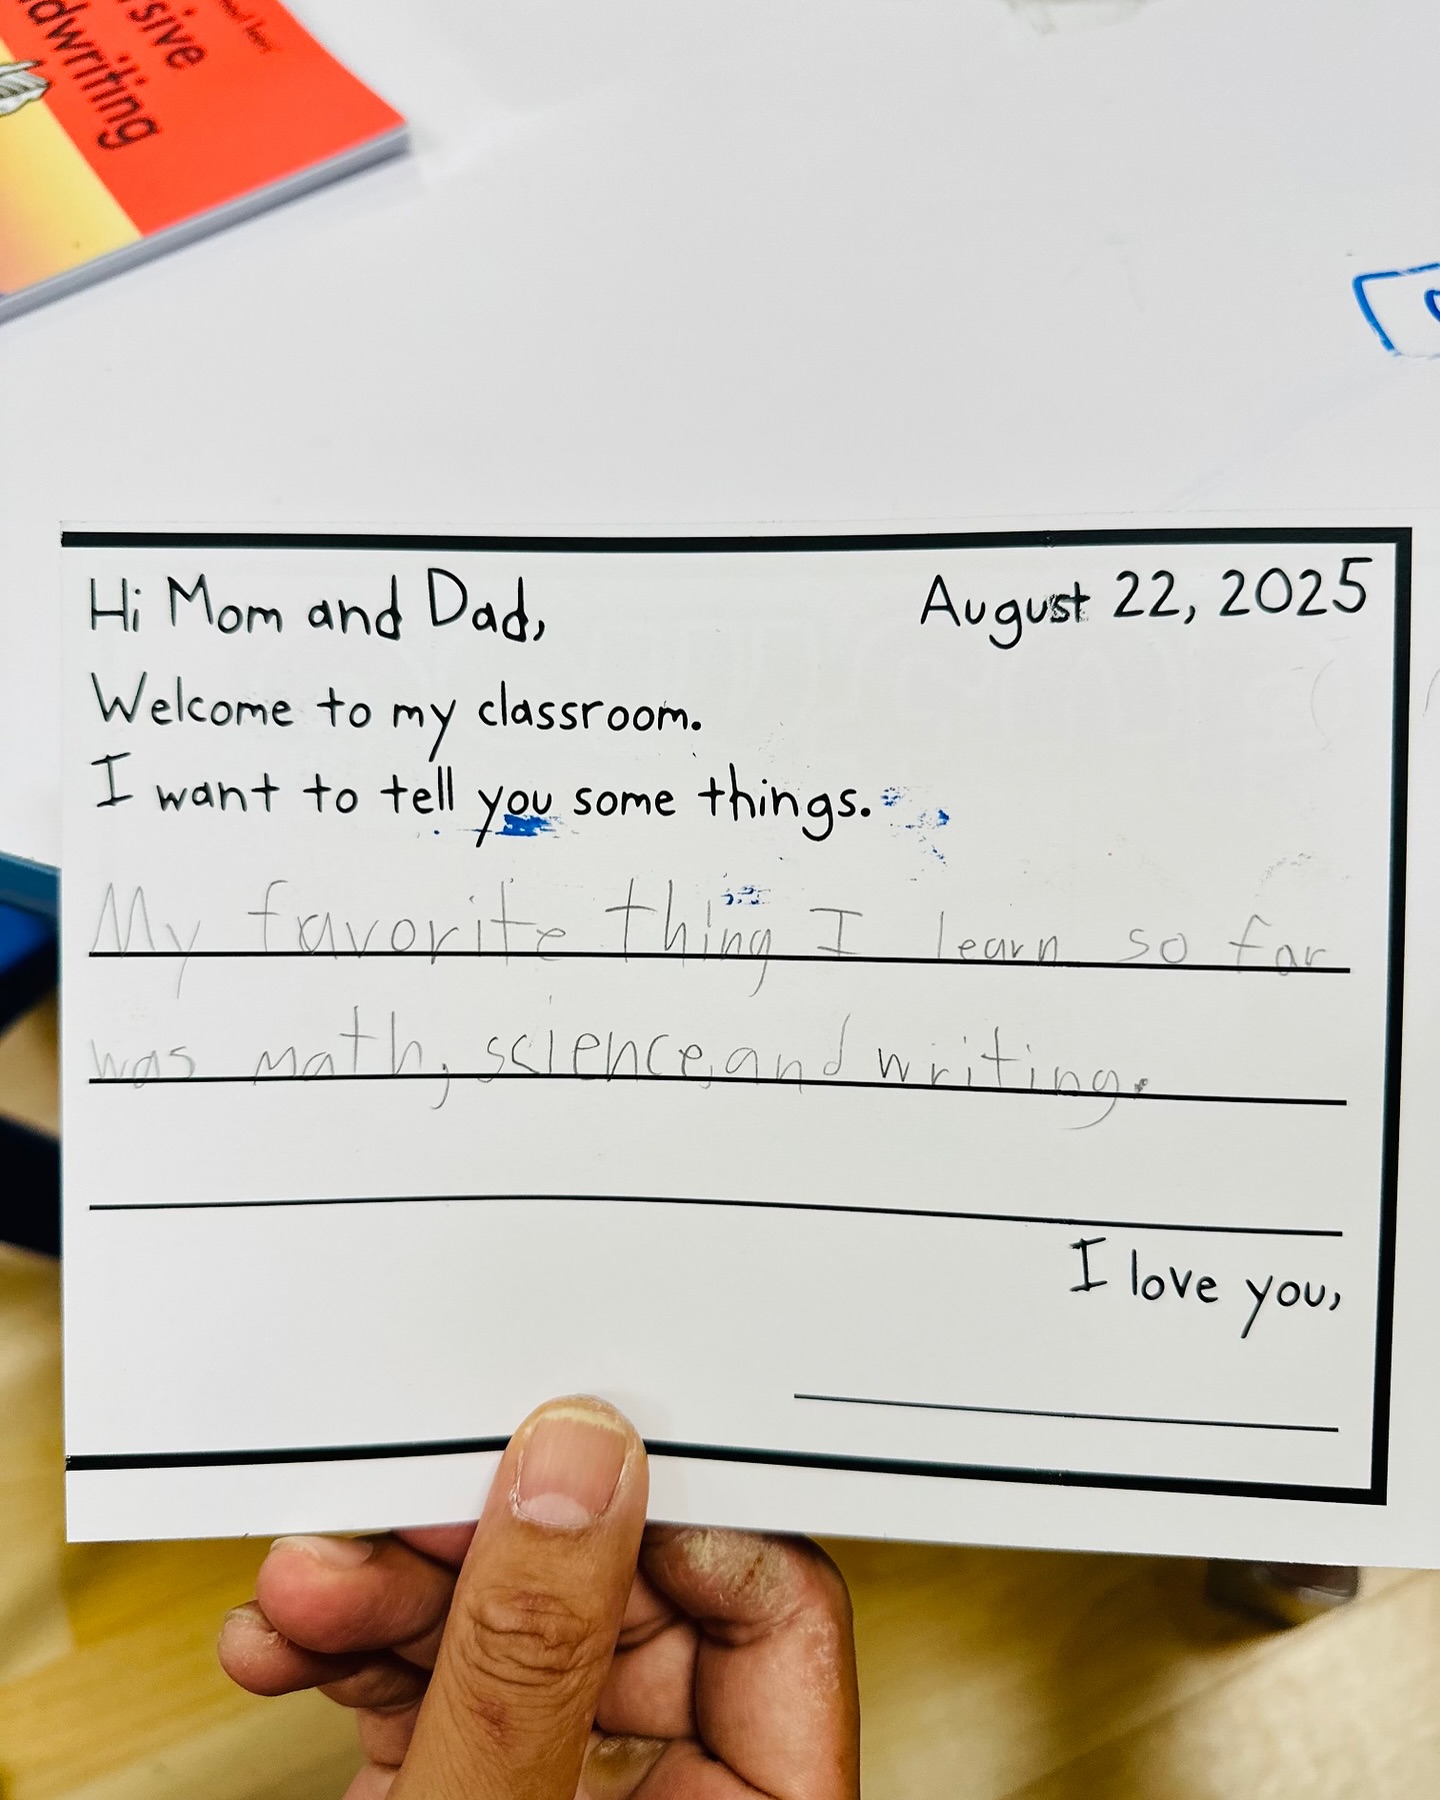 Hi Mom and Dad,
August 22, 2025
Welcome to my classroom.
I want to tell you some things.
My favorite thing I learn so far
was math, science, and writing.
I love you,